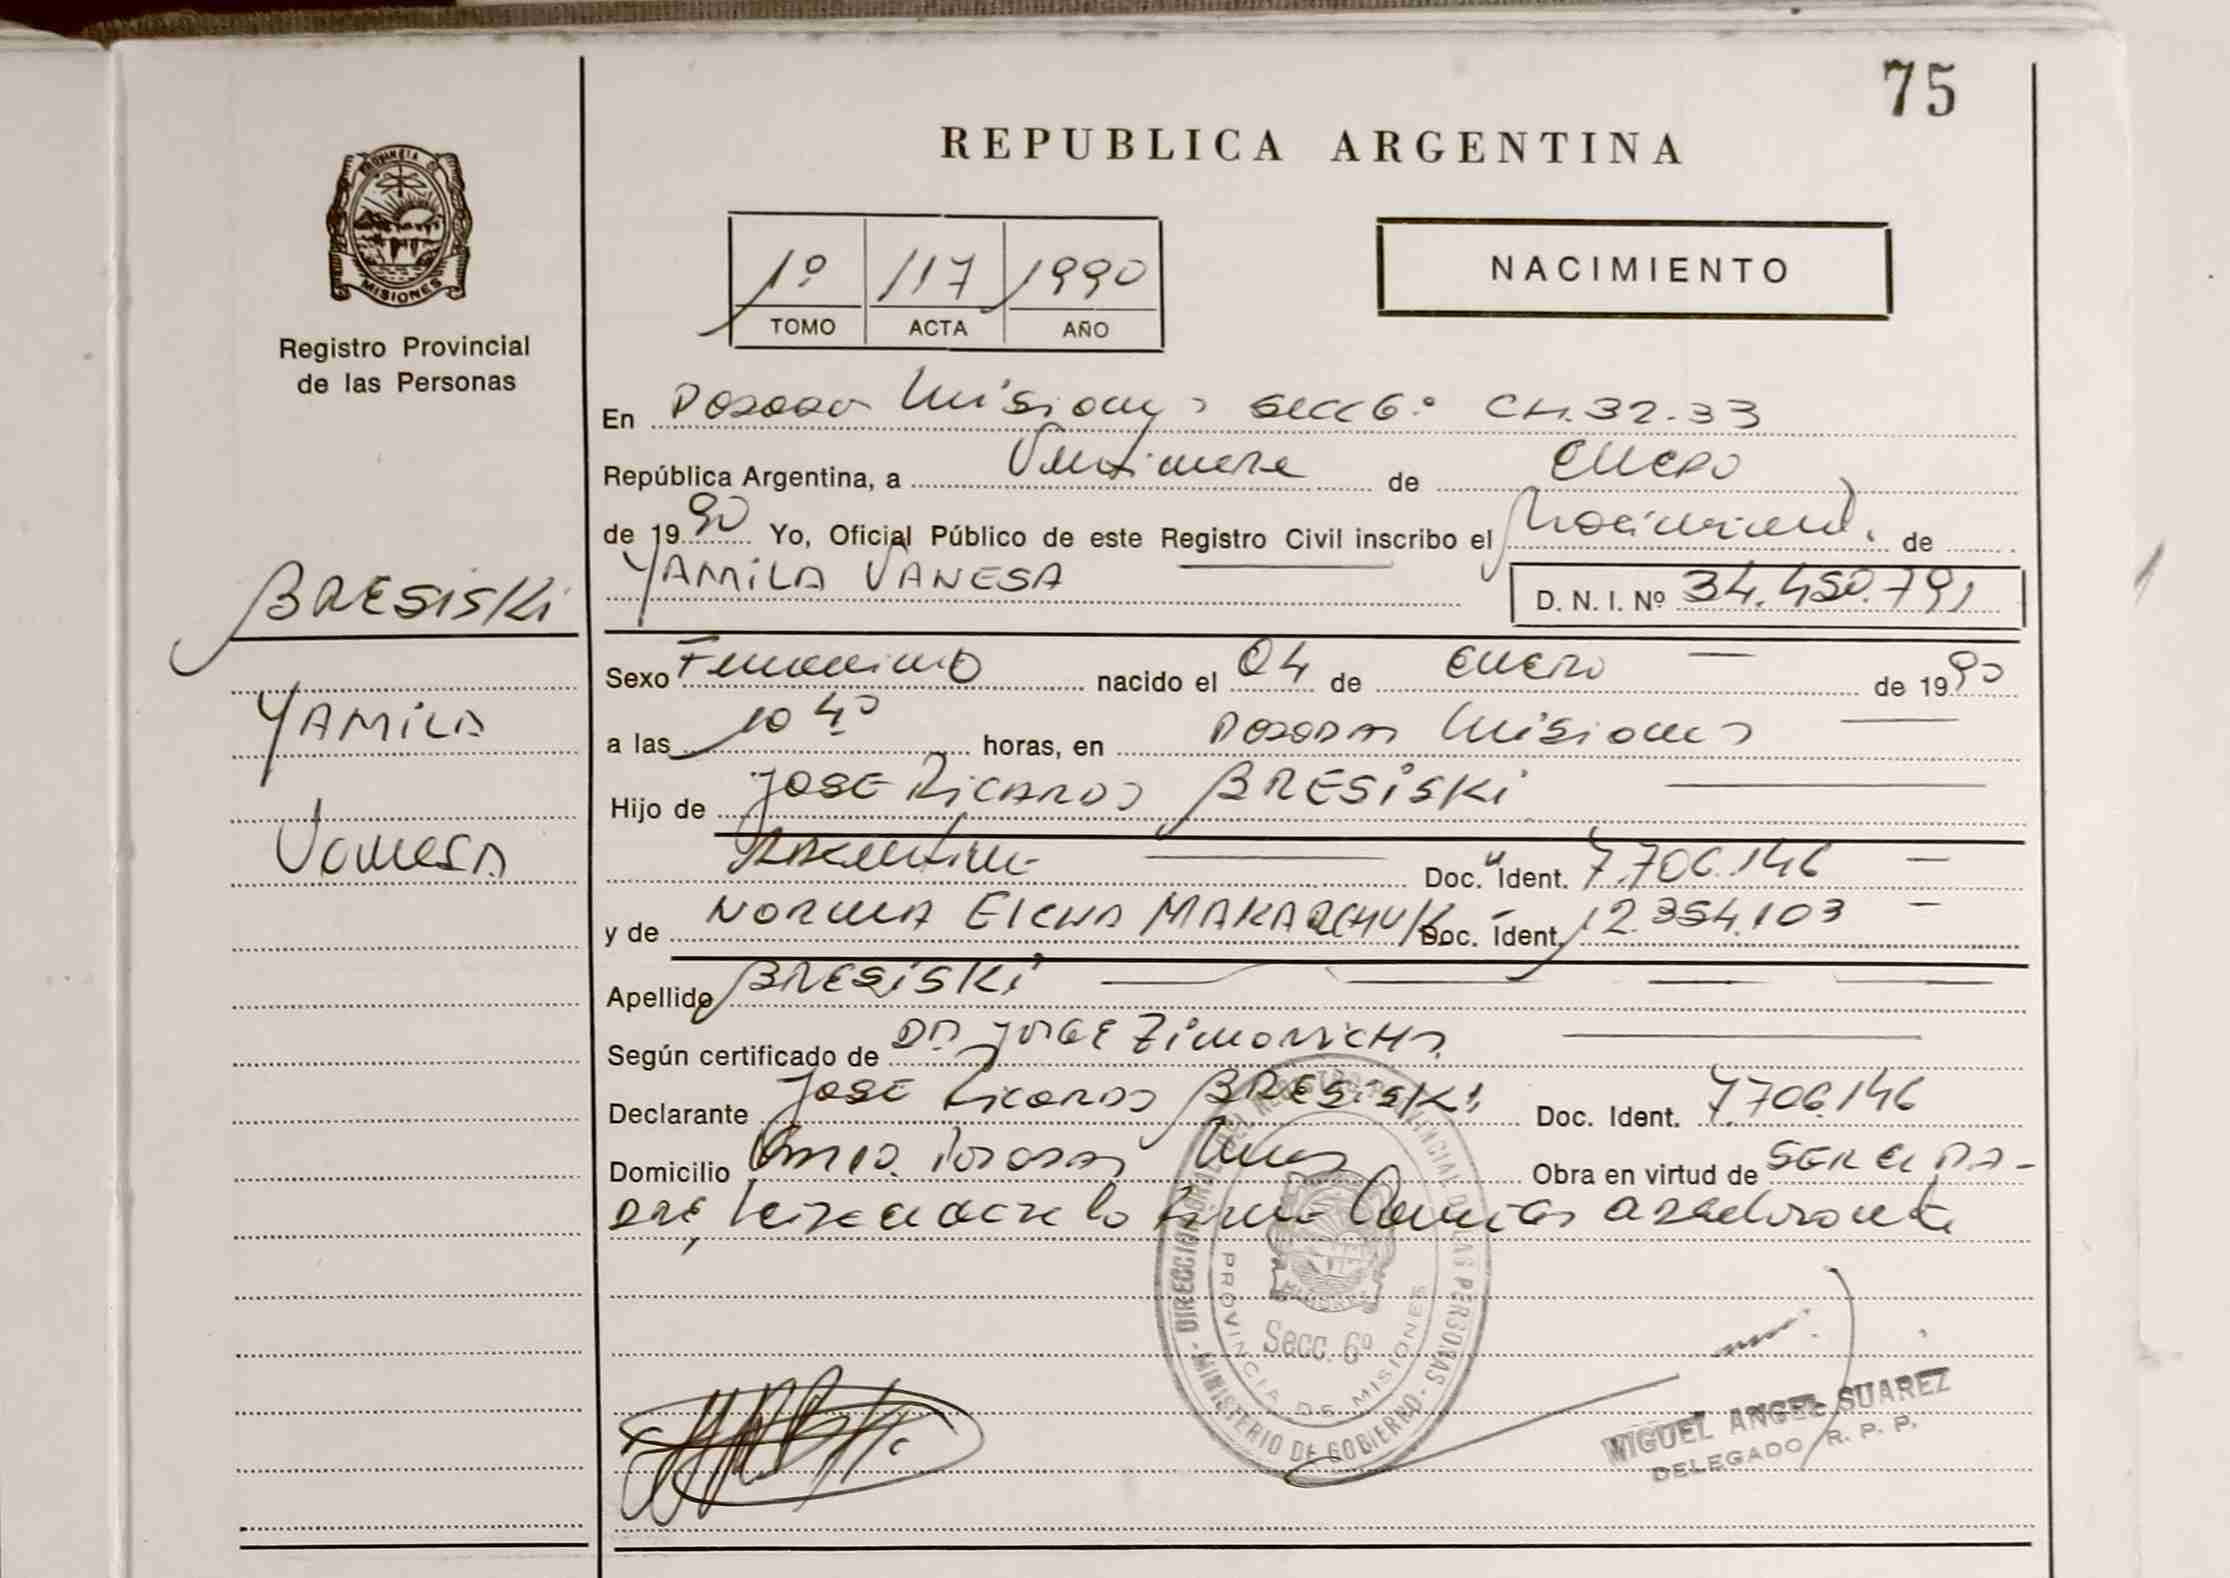 75
REPUBLICA ARGENTINA
PROVINCIA DE
MISIONES
Registro Provincial
de las Personas
1º 117 1990
TOMO ACTA AÑO
NACIMIENTO
En Posadas Misiones secc 6.º CH.32.33
República Argentina, a de Enero
de 1990 Yo, Oficial Público de este Registro Civil inscribo el Nacimiento de
YAMILA VANESA D. N. I. Nº 34.450.791
BRESISKI
Yamila
Vanesa
Sexo Femenino nacido el 04 de Enero de 1990
a las 10 40 horas, en Posadas Misiones
Hijo de JOSE RICARDO BRESISKI
Argentino Doc. Ident. 7.706.146
y de NORMA ELENA MAKARCHUK Doc. Ident. 12.354.103
Apellido BRESISKI
Según certificado de DR JORGE
Declarante JOSE RICARDO BRESISKI Doc. Ident. 7706.146
Domicilio Posadas Obra en virtud de SER EL PA-
DRE, el acta lo
DIRECCION GRAL. DEL REGISTRO PROVINCIAL DE LAS PERSONAS - MINISTERIO DE GOBIERNO -
PROVINCIA DE MISIONES
Secc. 6º
MIGUEL ANGEL SUAREZ
DELEGADO R. P. P.